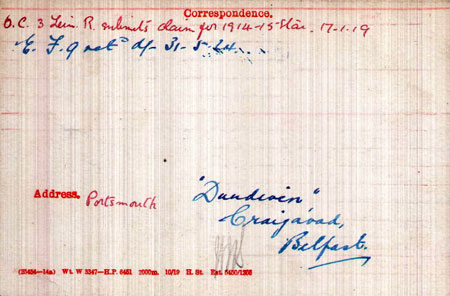 Correspondence.
O.C. 3 Lein. R. submits claim for 1914-15 Star. 17.1.19
E. F. 9 retd d/- 31-5-24.
Address. Portsmouth
"Dundevin"
Craijavad,
Belfast.
(25434-14a) Wt. W 5347-H.P. 6461 2000m. 10/19 H. St.